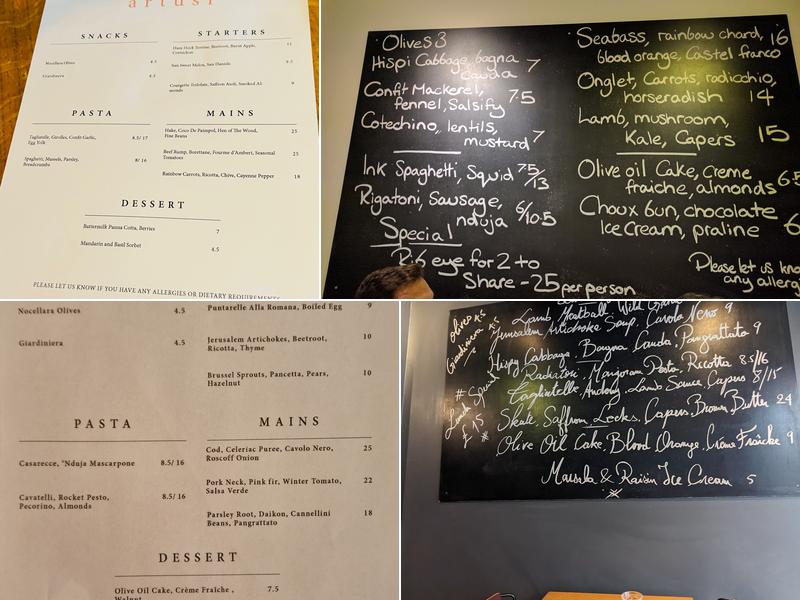 artusi
SNACKS
Nocellara Olives 4.5
Giardiniera 4.5
STARTERS
Ham Hock Terrine, Beetroot, Burnt Apple, 11
Cornichon
San Daniele 9.5
Courgette Trifolate, Saffron Aioli, Smoked Al- 9
monds
PASTA
Tagliatelle, Girolles, Confit Garlic, 8.5/ 17
Egg Yolk
Spaghetti, Mussels, Parsley, 8/ 16
Breadcrumbs
MAINS
Hake, Coco De Paimpol, Hen of The Wood, 25
Fine Beans
Beef Rump, Borettane, Fourme d'Ambert, Seasonal 25
Tomatoes
Rainbow Carrots, Ricotta, Chive, Cayenne Pepper 18
DESSERT
Buttermilk Panna Cotta, Berries 7
Mandarin and Basil Sorbet 4.5
PLEASE LET US KNOW IF YOU HAVE ANY ALLERGIES OR DIETARY REQUIREMENTS
Olives 3
Hispi Cabbage, bagna 7
cauda
Confit Mackerel, 7.5
fennel, Salsify
Cotechino, lentils, 7
mustard
Ink Spaghetti, Squid 7.5/13
Rigatoni, Sausage, 6/10.5
nduja
Special
Rib eye for 2 to
Share - 25 per person
Seabass, rainbow chard, 16
blood orange, Castel franco
Onglet, Carrots, radicchio,
horseradish 14
Lamb, mushroom,
Kale, Capers 15
Olive oil Cake, Creme 6.5
fraiche, almonds
Choux bun, chocolate 6
Ice Cream, praline
Please let us kno
any allerg
Nocellara Olives 4.5
Giardiniera 4.5
Puntarelle Alla Romana, Boiled Egg 9
Jerusalem Artichokes, Beetroot, 10
Ricotta, Thyme
Brussel Sprouts, Pancetta, Pears, 10
Hazelnut
PASTA
Casarecce, 'Nduja Mascarpone 8.5/ 16
Cavatelli, Rocket Pesto, 8.5/ 16
Pecorino, Almonds
MAINS
Cod, Celeriac Puree, Cavolo Nero, 25
Roscoff Onion
Pork Neck, Pink fir, Winter Tomato, 22
Salsa Verde
Parsley Root, Daikon, Cannellini 18
Beans, Pangrattato
DESSERT
Olive Oil Cake, Crème Fraîche , 7.5
Walnut
Olives
Giardiniera
# Special
Lunch
£ 15
Lamb Meatball, Wild
Jerusalem Artichoke Soup, Cavolo Nero 9
Hispy Cabbage, Bangna Cauda, Pangrattato 9
Radiatori, Marjoram Pesto, Ricotta 8.5/16
Tagliatelle, Lamb Sauce, Capers 8/15
Skate, Saffron, Leeks, Capers, Brown Butter 24
Olive Oil Cake, Blood Orange, Crème Fraîche 9
Marsala & Raisin Ice Cream 5